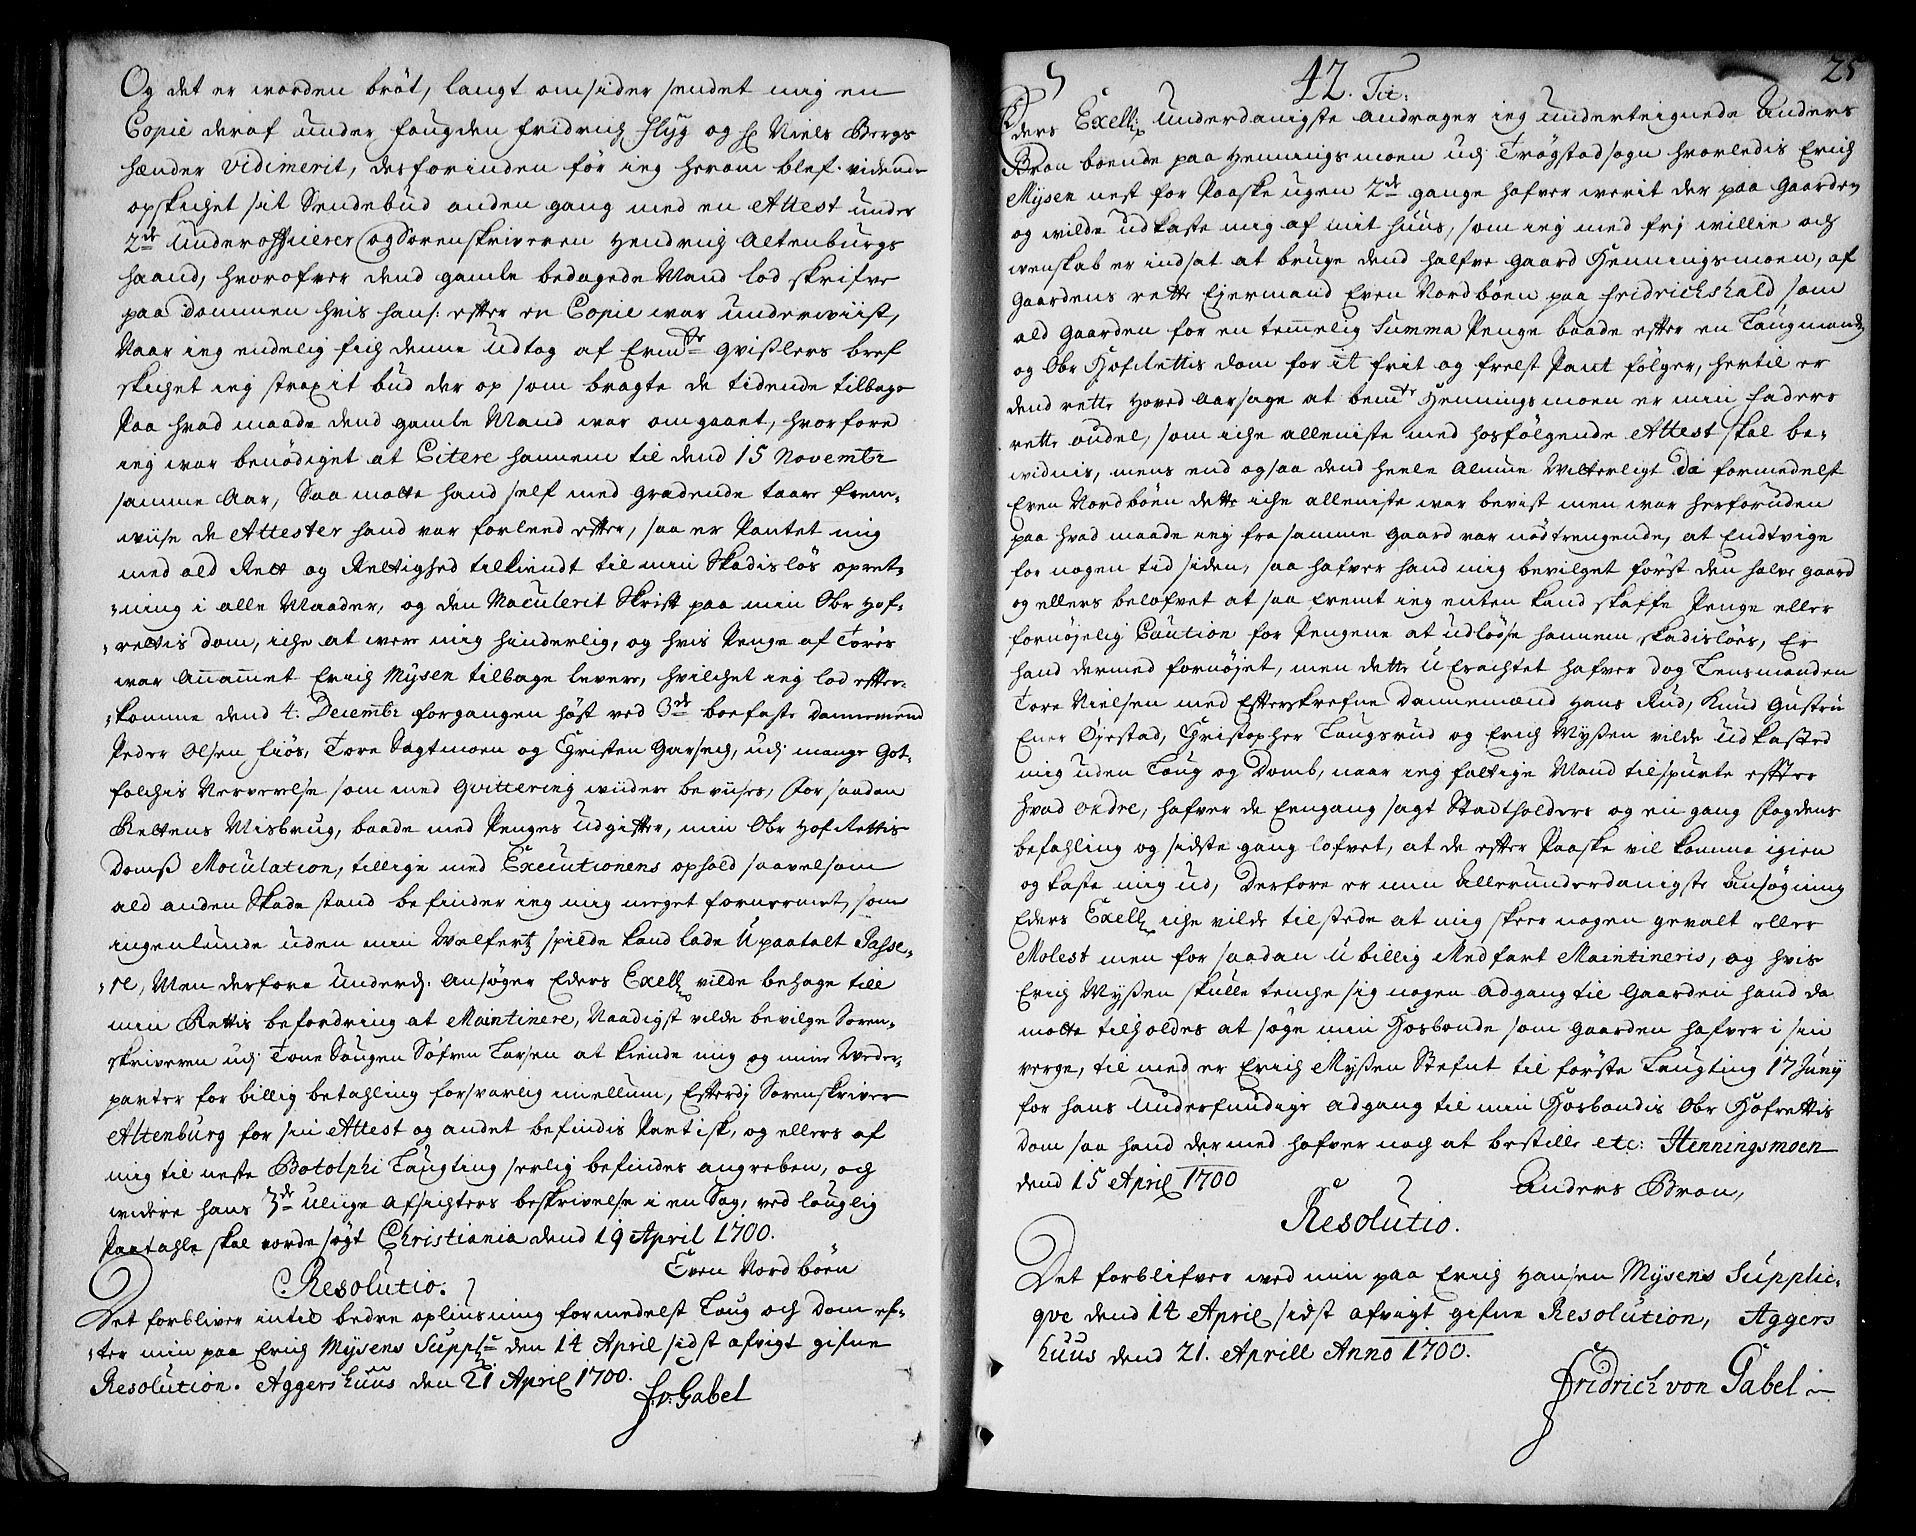 Og det er worden bröt, langt omsider sendet mig en
Copie deraf under fougden Fridrich Flyg og Hr Niels Bergs
hænder vidimerit, desforinden før ieg herom blef vidende
opskichet sit Sendebud anden gang med en Attest under
2de Underofficierer og Sorenskriveren Hendrich Altenburgs
haand, hvorofver dend gamle bedagede Mand lod skrifve
paa dommen hvis hans: efter en Copie war underwiist,
Naar ieg endelig fich denne udtog af Ermte Qvislers bref
skichet ieg strax it bud der op som bragte de tidende tilbage
Paa hvad maade dend gamle Mand war omgaaet, hvorfore
ieg war benödiget at Citere hannem til dend 15 Novembr
samme Aar, Saa motte hand self med grædende taare frem-
wiise de Attester hand var forleed efter, saa er Pantet mig
med ald Rett og Rettighed tilkiendt til min Skadislös opret-
ning i alle Maader, og den Maculerit Skrift paa min Obr Hof-
rettis dom, iche at were mig hinderlig, og hvis Penge af Tores
war Anammet Erich Mÿsen tilbage levere, hvilchet ieg lod efter-
komme dend 4. Decembr forgangen höst ved 3de boefaste Dannemend
Peder Olsen Fiös, Tore Sagtmoen og Christen Garseg, udj mange Got-
folchis Nerverelse som med Qvittering widere beviises, For saadan
Rettens Misbrug, baade med Penges udgifter, min Obr Hof Rettis
Domß Maculation, tillige med Executionens ophold saavelsom
ald anden Skade stand befinder ieg mig meget fornermet, som
ingenlunde uden min Welfertz spilde kand lade Upaatalt Passe-
re, Men derfore underd. ansøger Eders Exell vilde behage till
min Rettis befordring at Maintinere, Naadigst vilde bevilge Soren-
skriveren udj Tone Saugen Söfren Larsen at kiende mig og mine Weder-
parter for billig betahling forsvarlig imellum, Efterdj Sorenskriver
Altenburg for sin Attest og andet befindis Partisk, og ellers af
mig til neste Botolphi Laugting serlig befindes angreben, och
widere hans 3de uliige Afsichters beskrivelse i en Sag, ved louglig
Paatahle skal vorde søgt Christiania dend 19 April 1700.
Even Nordböen
Resolutio.
Det forbliver intil bedre oplinsning formedelst Loug och Dom ef-
ter min paa Erich Mÿsens Suppl den 14 April sidst afvigt gifne
Resolution. Aggershuus den 21 April 1700.
F. v. Gabel
25
42. Tit:
Eders Exell: underdanigste andrager ieg underteignede Anders
Bron boende paa Henningsmoen udj Trögstad sogn hvorledis Erich
Mÿsen nest for Paaske ugen 2de gange hafver werit der paa Gaarden
og wilde udkaste mig af mit huus, som ieg med frj willie och
wenskab er indsat at bruge dend halfve gaard Henningsmoen, af
Gaardens rette Ejermand Even Nordböen paa Fridrichshald som
ald Gaarden for en temmelig Summa Penge baade efter en Laugmands
og Obr Hofs Rettis dom for it frit og frelst Pant fölger, hertil er
dend rette Hoved Aarsage at bemte Henningsmoen er min Faders
rette oudel, som iche alleniste med hosfölgende Attest skal be-
widnis, mens end ogsaa dend heele Almue Witterligt da formedelst
Even Nordböen dette iche alleniste war bevist men war herforuden
paa hvad maade ieg fra samme Gaard var nödtrengende, at Endtvige
for nogen tid siden, saa hafver hand mig bevilget först den halve gaard
og ellers belofvet at saa fremt ieg enten kand skaffe Penge eller
fornöjelig Caution for Pengene at udlöse hannem skadislöes, Er
hand dermed fornöjet, men dette U Erachtet hafver dog Lensmanden
Tore Nielsen med Efterskrefne Dannemænd Hans Rud, Knud Gustru
Ener Öjestad, Christopher Laugsrud og Erich Myßen vilde udkasted
mig uden Loug og Domb, naar ieg fattige Mand tilspurte effter
hvad ordre, hafver de Eengang sagt Stadtholders og en gang Fogdens
befahling og sidste gang lofvet, at de efter Paaske vil komme igien
og kaste mig ud, Derfore er min allerunderdanigste ansøgning
Eders Exell iche vilde tilstede at mig skeer nogen gevalt eller
Molest men for saadan ubillig Medfart Maintineris, og hvis
Erich Myßen skulle tenche sig nogen adgang til Gaarden hand da
motte tilholdes at søge min Hosbonde som Gaarden hafver i sin
verge, til med er Erich Myßen Stefnt til förste Laugting 17 Junij
for hans Underfundige adgang til min Hosbondis Obr Hofrettis
dom saa hand der med hafver noch at bestille etc: Henningsmoen
dend 15 April 1700
Anders Bron,
Resolutio.
Det forblifver wed min paa Erich Hansen Mÿsens Supplic-
qve dend 14 April sidst afvigt gifne Resolution, Aggers
huus dend 21. Aprill Anno 1700.
Fridrich von Gabel